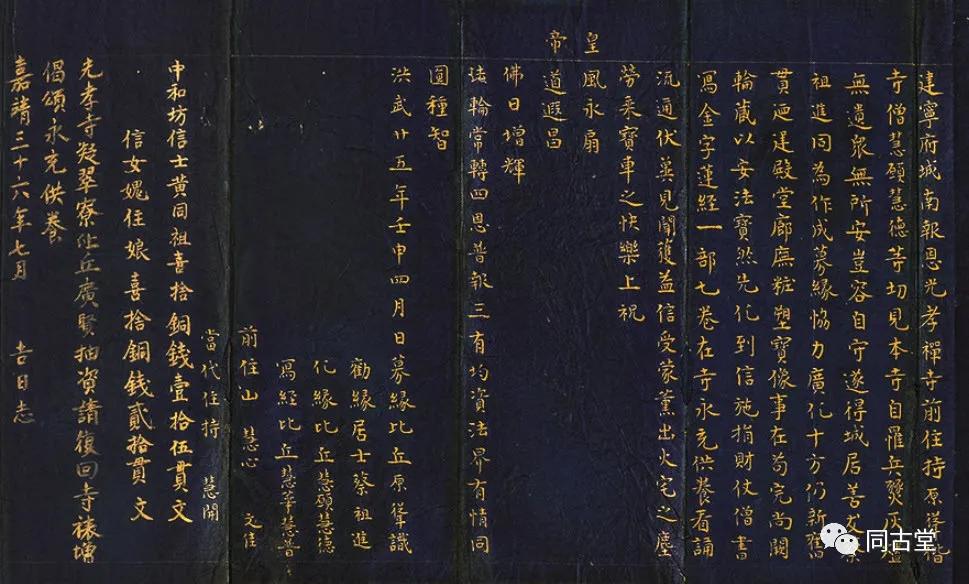 建寧府城南報恩光孝禪寺前住持原聳偕
寺僧慧頤慧德等切見本寺自罹兵燹灰燼
無遺眾無所安豈容自守遂得城居善友蔡
祖進同為作成募緣恊力廣化十方仍新舊
貫廼建殿堂廊廡粧塑寶像事在苟完尚闕
輪藏以安法寶然先化到信施捐財仗僧書
寫金字蓮經一部七卷在寺永充供養看誦
流通伏蘄見聞獲益信受蒙薰出火宅之塵
勞乘寶車之快樂上祝
皇風永扇
帝道遐昌
佛日增輝
法輪常轉四恩普報三有均資法界有情同
圓種智
洪武廿五年壬申四月日募緣比丘原聳識
勸緣居士蔡祖進
化緣比丘慧頤慧德
寫經比丘慧華慧晉
前住山 慧心 文信
當代住持 慧開
中和坊信士黃同祖喜捨銅錢壹拾伍貫文
信女媿住娘喜捨銅錢貳拾貫文
光孝寺凝翠寮比丘廣賢抽資請復回寺裱
偈頌永充供養
嘉靖三十六年七月 吉日志
同古堂